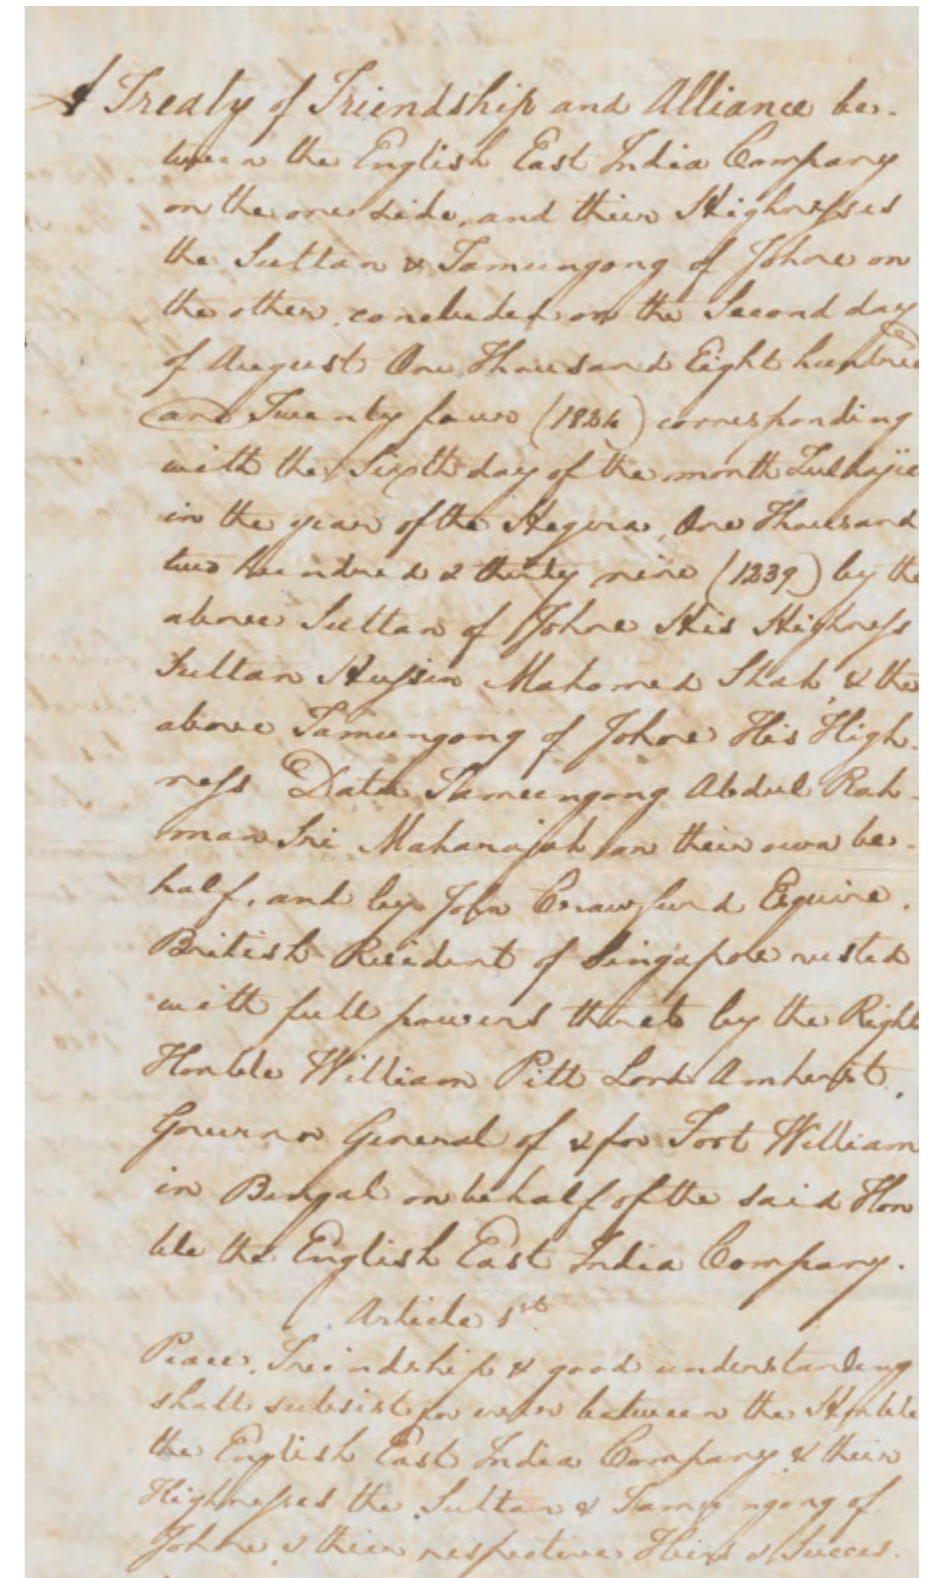 A Treaty of Friendship and Alliance be-
tween the English East India Company
on the one side, and their Highnesses
the Sultan & Tamungong of Johore on
the other, concluded on the Second day
of August One Thousand Eight hundred
and Twenty four (1824) corresponding
with the Sixth day of the month Zulhajie
in the year of the Hegira, One Thousand
two hundred & thirty nine (1239) by the
above Sultan of Johore His Highness
Sultan Hussin Mahomed Shah, & the
above Tamungong of Johore His High-
ness Datu Tamungong Abdul Rah-
man Sri Maharajah on their own be-
half, and by John Crawfurd Esquire,
British Resident of Singapore vested
with full powers thereto by the Right
Honble William Pitt Lord Amherst,
Governor General of & for Fort William
in Bengal on behalf of the said Hon
ble the English East India Company.
Article 1st
Peace, Friendship & good understanding
shall subsist for ever between the Honble
the English East India Company & their
Highnesses the Sultan & Tamungong of
Johore & their respective Heirs & Succes.